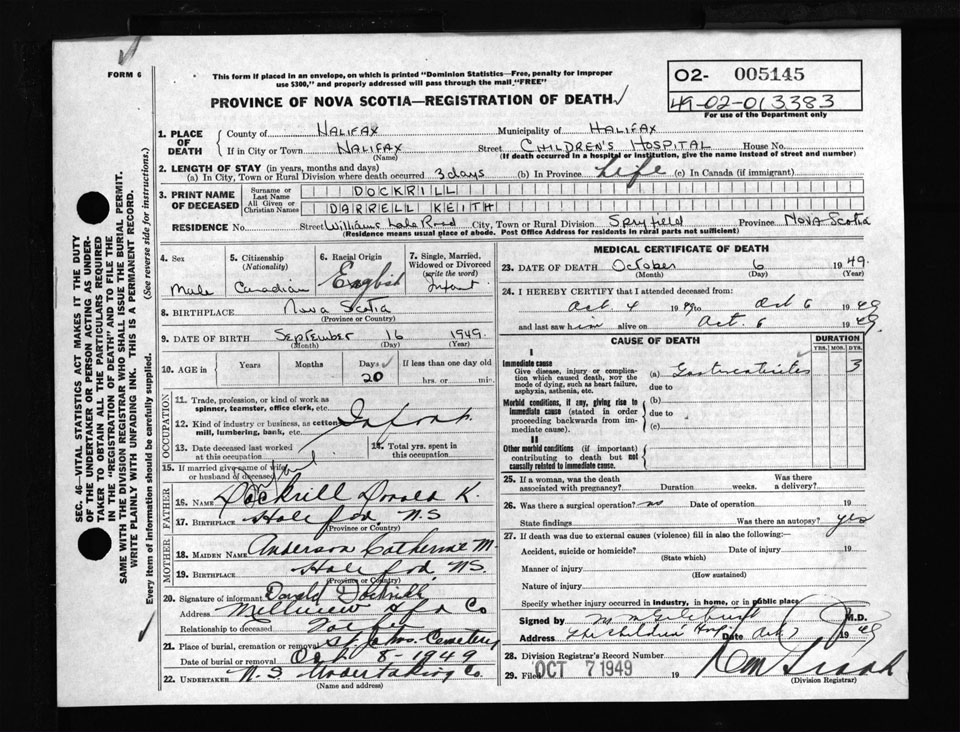 FORM 6
This form if placed in an envelope, on which is printed "Dominion Statistics—Free, penalty for improper
use $300," and properly addressed will pass through the mail "FREE"
PROVINCE OF NOVA SCOTIA—REGISTRATION OF DEATH
O2- 005145
49-02-013383
For use of the Department only
SEC. 46—VITAL STATISTICS ACT MAKES IT THE DUTY
OF THE UNDERTAKER OR PERSON ACTING AS UNDER-
TAKER TO OBTAIN ALL THE PARTICULARS REQUIRED
IN THE "REGISTRATION OF DEATH" AND TO FILE THE
SAME WITH THE DIVISION REGISTRAR WHO SHALL ISSUE THE BURIAL PERMIT.
WRITE PLAINLY WITH UNFADING INK. THIS IS A PERMANENT RECORD.
Every item of information should be carefully supplied. (See reverse side for instructions.)
1. PLACE OF DEATH
County of HALIFAX Municipality of HALIFAX
If in City or Town HALIFAX Street CHILDREN'S HOSPITAL House No.
(Name) (If death occurred in a hospital or institution, give the name instead of street and number)
2. LENGTH OF STAY (in years, months and days)
(a) In City, Town or Rural Division where death occurred 3 days (b) In Province Life (c) In Canada (if immigrant)
3. PRINT NAME OF DECEASED
Surname or Last Name DOCKRILL
All Given or Christian Names DARRELL KEITH
RESIDENCE No. Street Williams Lake Road City, Town or Rural Division Spryfield Province NOVA SCOTIA
(Residence means usual place of abode. Post Office Address for residents in rural parts not sufficient)
4. Sex Male
5. Citizenship (Nationality) Canadian
6. Racial Origin English
7. Single, Married, Widowed or Divorced (write the word) Infant
8. BIRTHPLACE Nova Scotia
(Province or Country)
9. DATE OF BIRTH September 16 1949
(Month) (Day) (Year)
10. AGE in Years Months Days 20 If less than one day old hrs. or min.
OCCUPATION
11. Trade, profession, or kind of work as spinner, teamster, office clerk, etc.
12. Kind of industry or business, as cotton mill, lumbering, bank, etc. Infant
13. Date deceased last worked at this occupation
14. Total yrs. spent in this occupation
15. If married give name of wife or husband of deceased
FATHER
16. Name Dockrill Donald K.
17. Birthplace N.S
(Province or Country)
MOTHER
18. MAIDEN NAME Anderson Catherine M.
19. BIRTHPLACE N.S.
(Province or Country)
20. Signature of informant Donald Dockrill
Address Millview Hfx Co
Relationship to deceased Father
21. Place of burial, cremation or removal Cemetery
Date of burial or removal Oct 8-1949
22. UNDERTAKER N.S Undertaking Co.
(Name and address)
MEDICAL CERTIFICATE OF DEATH
23. DATE OF DEATH October 6 1949
(Month) (Day) (Year)
24. I HEREBY CERTIFY that I attended deceased from:
Oct 4 to Oct 6 1949
and last saw him alive on Oct. 6 1949
CAUSE OF DEATH
DURATION
YRS. MOS. DYS.
I
Immediate cause
Give disease, injury or complication which caused death, NOT the mode of dying, such as heart failure, asphyxia, asthenia, etc.
(a) Gastroenteritis 3
due to
Morbid conditions, if any, giving rise to immediate cause (stated in order proceeding backwards from immediate cause).
(b)
due to
(c)
II
Other morbid conditions (if important) contributing to death but not causally related to immediate cause.
25. If a woman, was the death associated with pregnancy? Duration weeks. Was there a delivery?
26. Was there a surgical operation? no Date of operation 19
State findings Was there an autopsy? yes
27. If death was due to external causes (violence) fill in also the following:
Accident, suicide or homicide? Date of injury 19
(State which)
Manner of injury
(How sustained)
Nature of injury
Specify whether injury occurred in industry, in home, or in public place
Signed by M.D.
Address The Children's Hosp. Date Oct 7 1949
28. Division Registrar's Record Number
29. Filed OCT 7 1949 19
(Division Registrar)